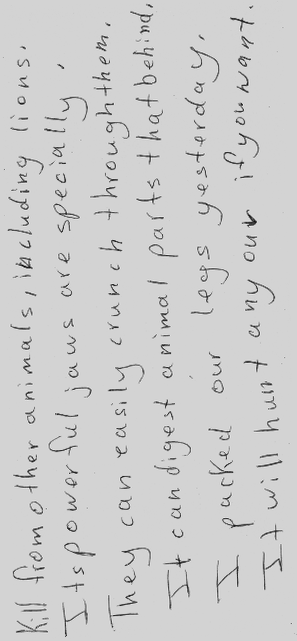 Kill from other animals, including lions.
Its powerful jaws are specially.
They can easily crunch through them.
It can digest animal parts that behind.
I packed our legs yesterday.
It will hunt any our if you want.